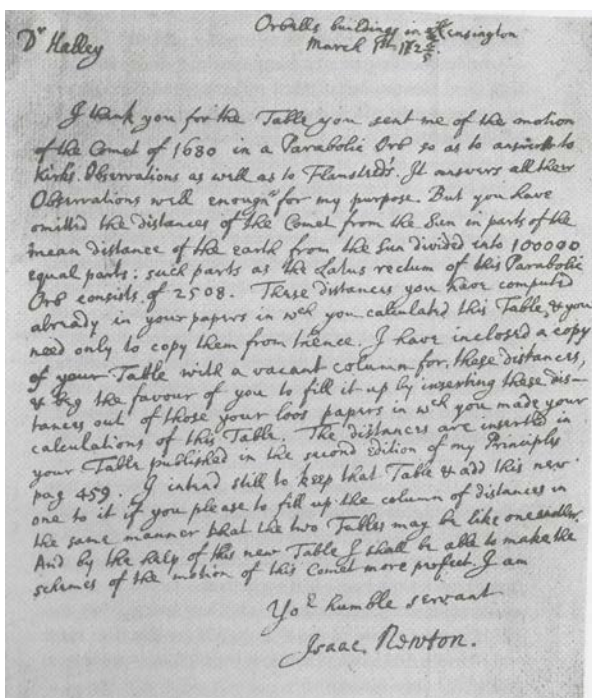 Orbells buildings in Kensington
March 1724/5.
Dr Halley
I thank you for the Table you sent me of the motion
of the Comet of 1680 in a Parabolic Orb so as to answer to
Kirks Observations as well as to Flamsteds. It answers all their
Observations well enough for my purpose. But you have
omitted the distances of the Comet from the Sun in parts of the
mean distance of the earth from the Sun divided into 100000
equal parts: such parts as the Latus rectum of this Parabolic
Orb consists of 2508. These distances you have computed
already in your papers in wch you calculated this Table, & you
need only to copy them from thence. I have inclosed a copy
of your Table with a vacant column for these distances,
& beg the favour of you to fill it up by inserting these dis-
tances out of those your loos papers in wch you made your
calculations of this Table. The distances are inserted in
your Table published in the second edition of my Principles
pag 459. I intend still to keep that Table & add this new
one to it if you please to fill up the column of distances in
the same manner that the two Tables may be like one another.
And by the help of this new Table I shall be able to make the
schemes of the motion of this Comet more perfect. I am
Yor humble servant
Isaac Newton.